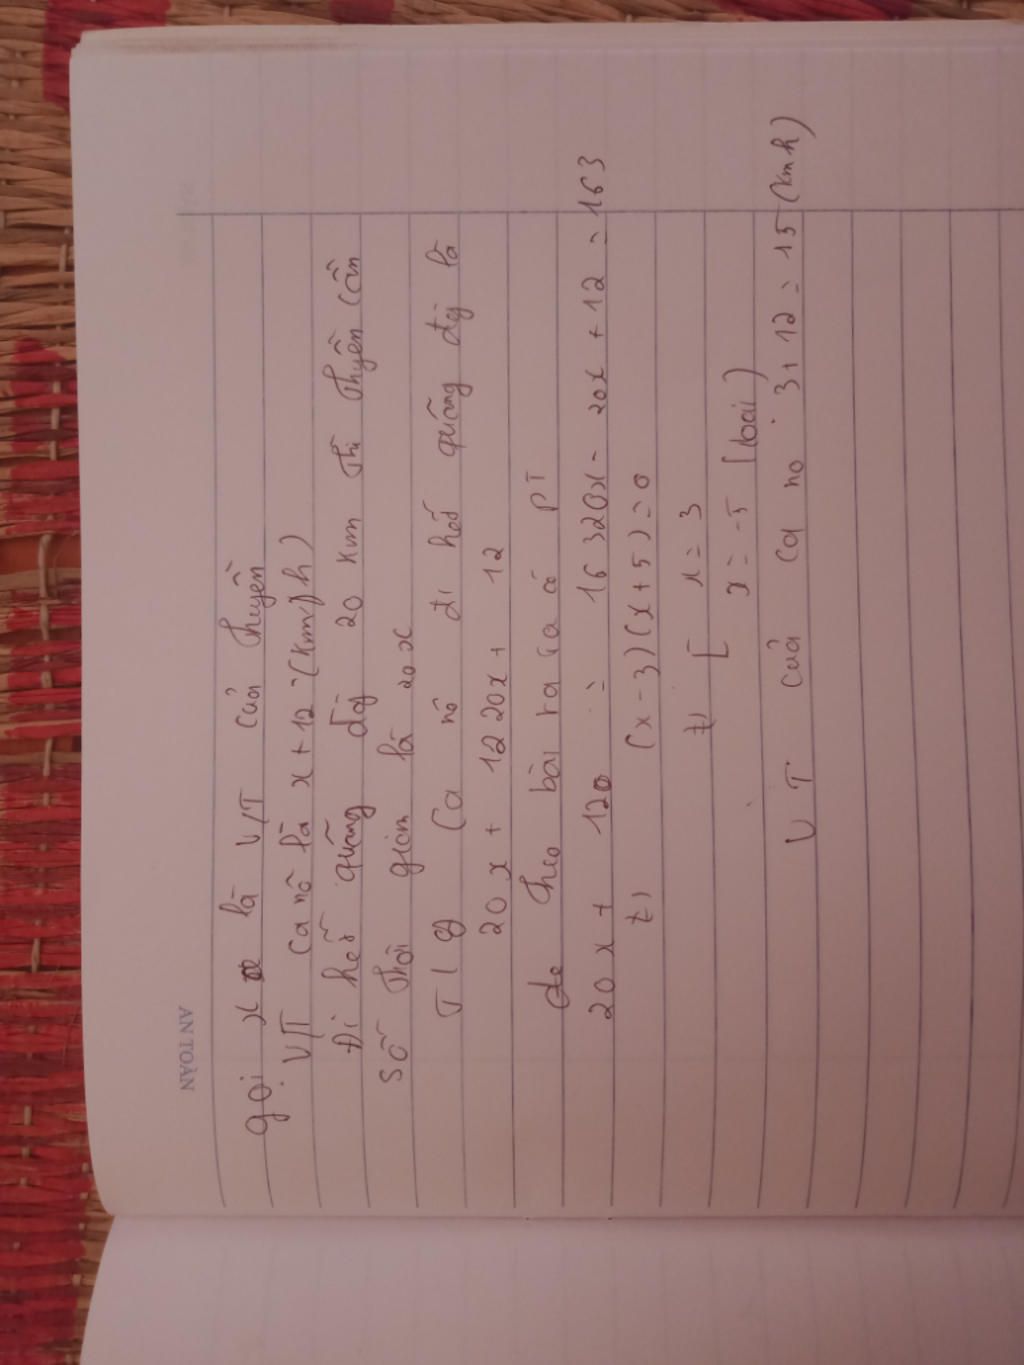 AN TOÀN
gọi x là V/T của thuyền
V/T ca nô là x + 12 (km/h)
Đi hết quãng đg 20 km thì thuyền cần
số thời gian là 20x
T/g ca nô đi hết quãng đg là
20x + 12 20x + 12
do theo bài ra ta có PT
20x + 120 = 16 320x - 20x + 12 = 163
(x - 3)(x + 5) = 0
[ x = 3
x = -5 (loại)
VT của ca no 3 + 12 = 15 (km h)